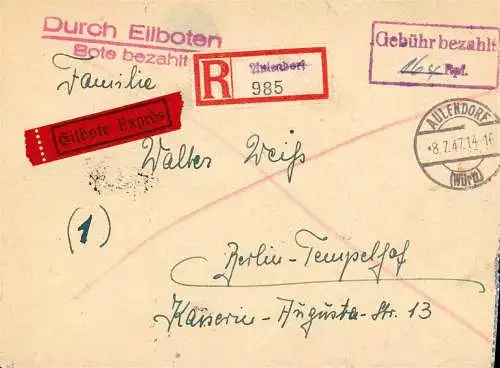 Durch Eilboten
Bote bezahlt
Familie
R
Aulendorf
985
Gebühr bezahlt
164 Rpf.
Eilbote Exprès
AULENDORF
8.7.47.14-1
(WÜRTT)
Walter Weiß
(1)
Berlin-Tempelhof
Kaiserin-Augusta-Str. 13